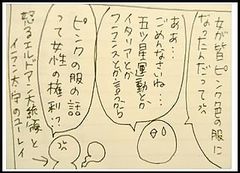 女が皆ピンク色の服に
なったんだって?
ああ…
ごめんなさいね…
五ツ星運動とか
イタリアとか
フランスとか言うから
ピンクの服の話
って女性の権利!?
怒るエルドアン大統領と
イラン大守のユーレイ